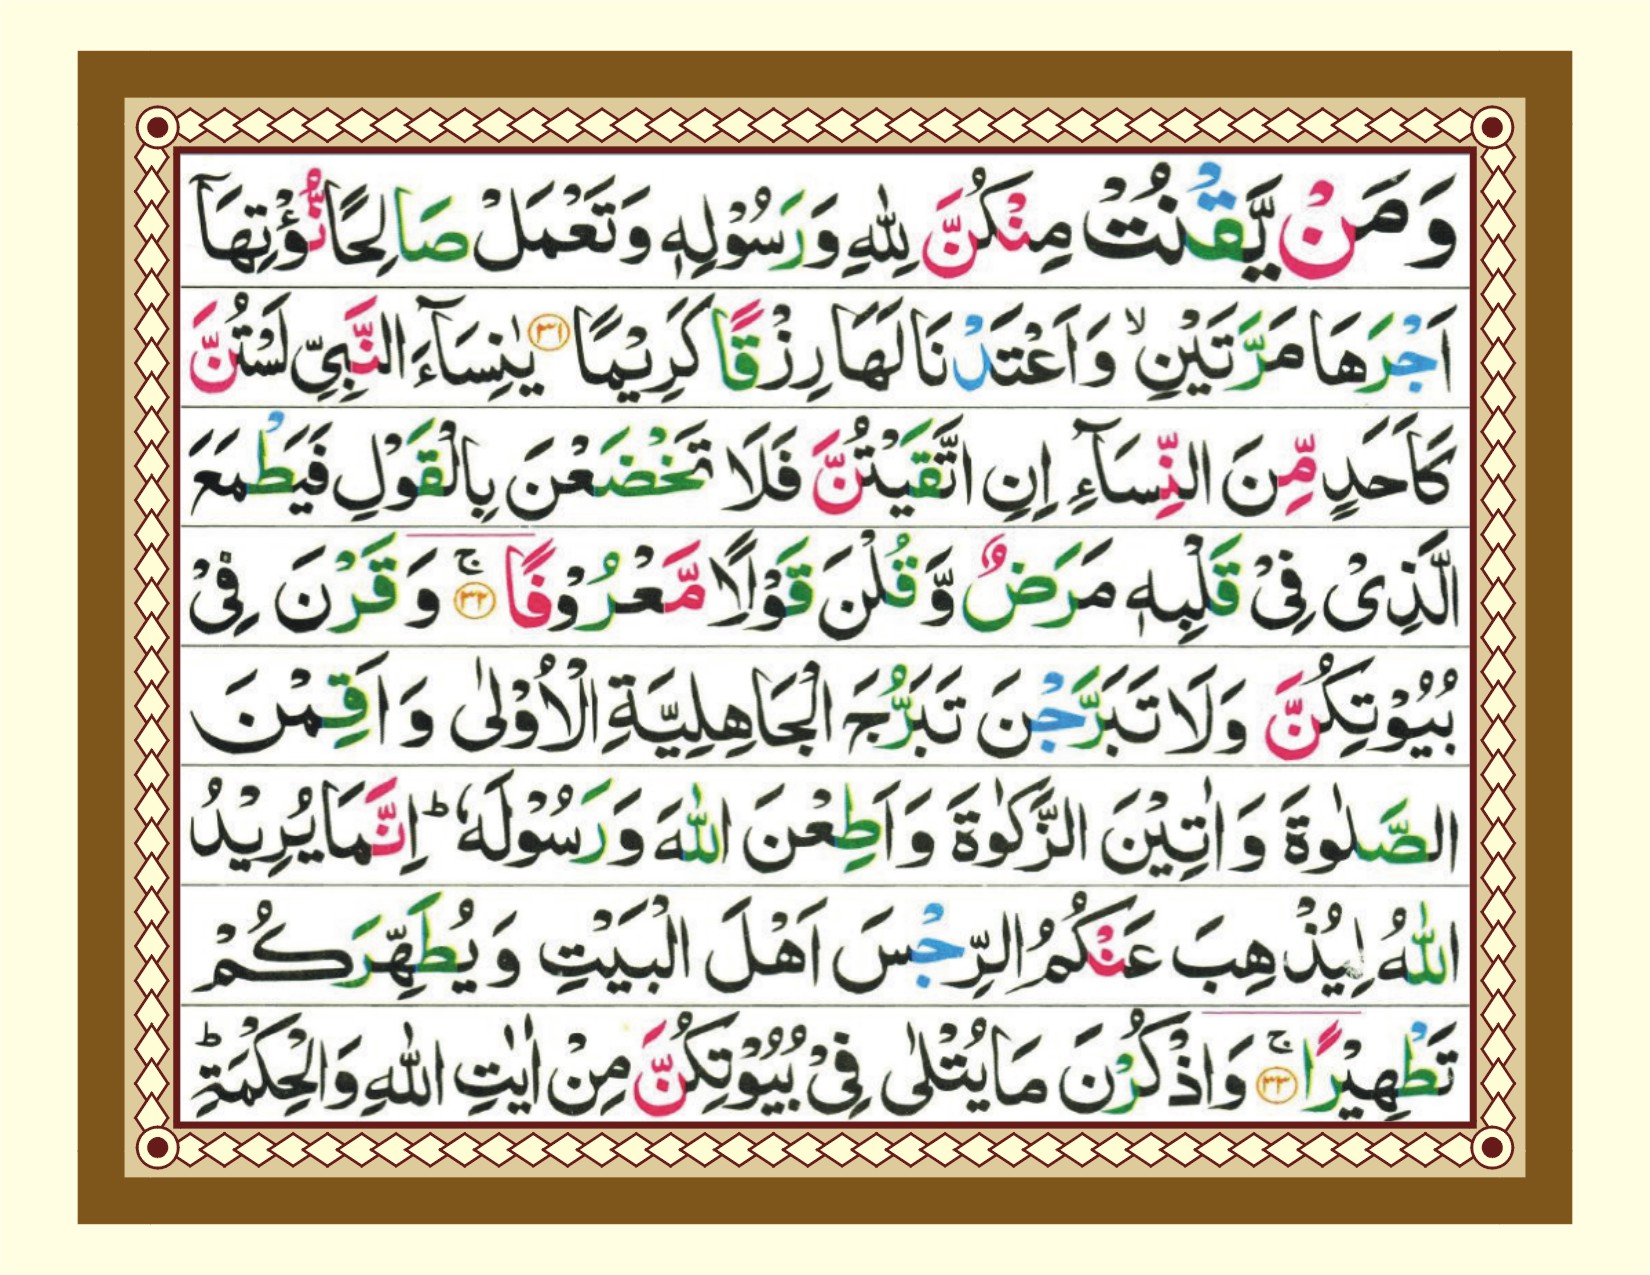 وَمَنْ يَّقْنُتْ مِنْكُنَّ لِلّٰهِ وَرَسُوْلِهٖ وَتَعْمَلْ صَالِحًا نُّؤْتِهَاۤ
اَجْرَهَا مَرَّتَيْنِۙ وَاَعْتَدْنَا لَهَا رِزْقًا كَرِيْمًا ﴿۳۱﴾ يٰنِسَآءَ النَّبِيِّ لَسْتُنَّ
كَاَحَدٍ مِّنَ النِّسَآءِ اِنِ اتَّقَيْتُنَّ فَلَا تَخْضَعْنَ بِالْقَوْلِ فَيَطْمَعَ
الَّذِىْ فِىْ قَلْبِهٖ مَرَضٌ وَّقُلْنَ قَوْلًا مَّعْرُوْفًا ۚ﴿۳۲﴾ وَقَرْنَ فِىْ
بُيُوْتِكُنَّ وَلَا تَبَرَّجْنَ تَبَرُّجَ الْجَاهِلِيَّةِ الْاُوْلٰى وَاَقِمْنَ
الصَّلٰوةَ وَاٰتِيْنَ الزَّكٰوةَ وَاَطِعْنَ اللّٰهَ وَرَسُوْلَهٗ ؕ اِنَّمَا يُرِيْدُ
اللّٰهُ لِيُذْهِبَ عَنْكُمُ الرِّجْسَ اَهْلَ الْبَيْتِ وَيُطَهِّرَكُمْ
تَطْهِيْرًا ۚ﴿۳۳﴾ وَاذْكُرْنَ مَا يُتْلٰى فِىْ بُيُوْتِكُنَّ مِنْ اٰيٰتِ اللّٰهِ وَالْحِكْمَةِ ؕ